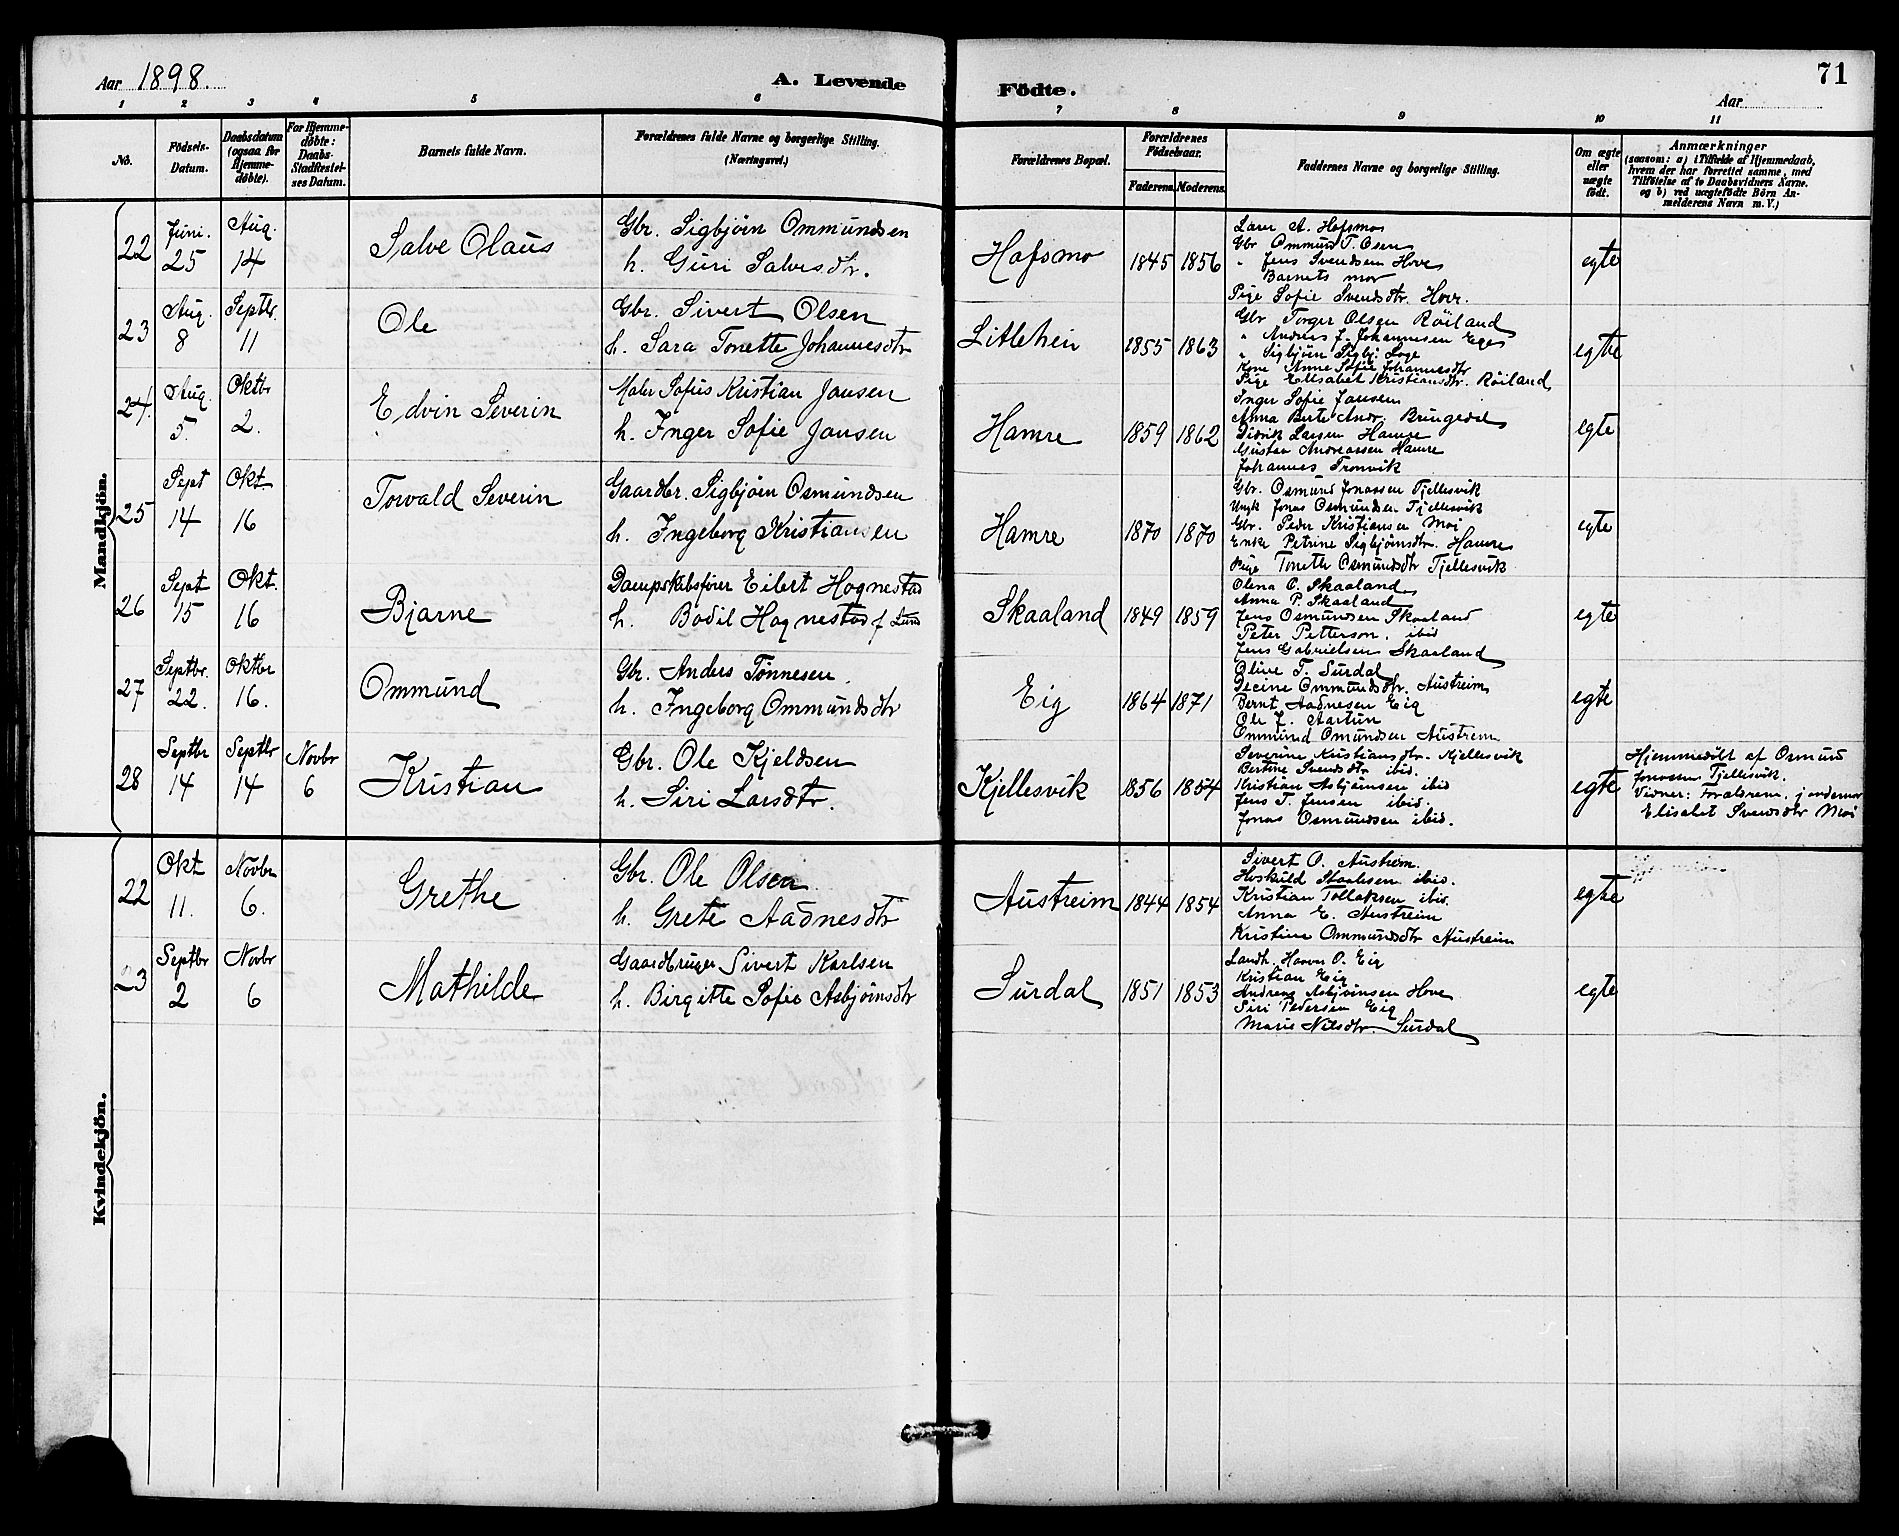 Aar 1898.
A. Levende Födte.
71
Aar
1 2 3 4 5 6 7 8 9 10 11
No.
Födsels-Datum.
Daabsdatum (ogsaa for Hjemme-döbte).
For Hjemme-döbte: Daabs-Stadfæstel-ses Datum.
Barnets fulde Navn.
Forældrenes fulde Navne og borgerlige Stilling. (Næringsvei.)
Forældrenes Bopæl.
Forældrenes Födselsaar.
Faderens. Moderens.
Faddernes Navne og borgerlige Stilling.
Om ægte eller uægte födt.
Anmærkninger
(saasom: a) i Tilfælde af Hjemmedaab,
hvem der har forrettet samme, med
Tilföielse af to Daabsvidners Navne,
og b) ved uægtefödte Börn An-
melderens Navn m. V.)
Mandkjön.
22 Juni. 25 Aug. 14 Salve Olaus
Gbr. Sigbjørn Ommundsen
h. Guri Salvesdtr.
Hofsmo 1845 1856
Lars A. Hofsmo
Gbr Ommund T. Osen
" Jens Svendsen Hove
Barnets mor
Pige Sofie Svendsdtr. Hove.
egte
23 Aug. 8 Septbr. 11 Ole
Gbr. Sivert Olsen
h. Sara Tonette Johannesdtr
Litlehei 1855 1863
Gbr Torger Olsen Röiland
" Andreas J. Johannesen Ege
" Sigbjörn Sigbj. Loge
Kone Anne Sofie Johannesdtr
Pige Elisabet Kristiansdtr. Röiland
egte
24. Aug. 5. Oktbr 2. Edvin Severin
Maler Sofus Kristian Jansen
h. Inger Sofie Jansen
Hamre 1859 1862
Inger Sofie Jansen
Anna Berte Andr. Bringedal
Didrik Larsen Hamre
Gustav Andreassen Hamre
Johannes Tronvik
egte
25 Sept 14 Okt 16 Torvald Severin
Gaardbr. Sigbjørn Osmundsen
h. Ingeborg Kristiansen
Hamre 1870 1870
Gbr. Osmund Jonassen Tjellesvik
Ungk Jonas Osmundsen Tjellesvik
Gbr. Peder Kristiansen Moi
Enke Petrine Sigbjørnsdtr. Hamre
Pige Tonette Osmundsdtr Tjellesvik
egte
26 Sept 15 Okt. 16 Bjarne
Dampskibsfører Eilert Hognestad
h. Bodil Hognestad f. Lund
Skaaland 1849 1859
Olena O. Skaaland
Anna P. Skaaland
Jens Osmundsen Skaaland
Peter Petterson. ibid
Jens Gabrielsen Skaaland
egte
27 Septbr. 22. Oktbr 16. Ommund
Gbr. Anders Tønnesen.
h. Ingeborg Ommundsdtr
Eig 1864 1871
Oline T. Surdal
Decine Ommundsdtr. Austreim
Bernt Aadnesen Eig
Ole J. Aartun
Ommund Omundsen Austrem
egte
28 Septbr 14 Septbr 14 Novbr 6 Kristian
Gbr. Ole Kjeldsen
h. Siri Larsdtr.
Kjellesvik 1856 1854
Severine Kristiansdtr. Kjellesvik
Bertine Svendsdtr ibid.
Kristian Asbjørnsen ibid
Jens T. Jensen ibid.
Jonas Osmundsen ibid.
egte
Hjemmedöbt af Osmund
Jonassen Tjellesvik.
Vidner: Forældrene, jordemor
Elisabet Svendsdtr Moi
Kvindekjön.
22 Okt 11. Novbr 6. Grethe
Gbr. Ole Olsen
h. Grete Aadnesdtr
Austreim 1844 1854
Sivert O. Austreim.
Hoskuld Staalesen ibid.
Kristian Tollaksen ibid.
Anna E. Austreim
Kristine Ommundsdtr Austreim
egte
23 Septbr 2 Novbr 6 Mathilde
Gaardbruger Sivert Karlsen
h. Birgitte Sofie Asbjørnsdtr
Surdal 1851 1853
Landh. Haavar O. Eig
Kristian Eig
Andreas Asbjørnsen Hove
Siri Pedersen Eig
Marie Nilsdtr. Surdal
egte